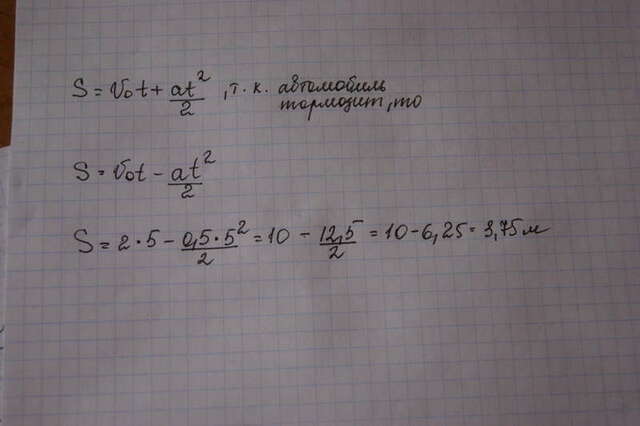 S = V₀t + at²/2, т. к. автомобиль
тормозит, то
S = V₀t - at²/2
S = 2 · 5 - 0,5 · 5²/2 = 10 - 12,5/2 = 10 - 6,25 = 3,75 м